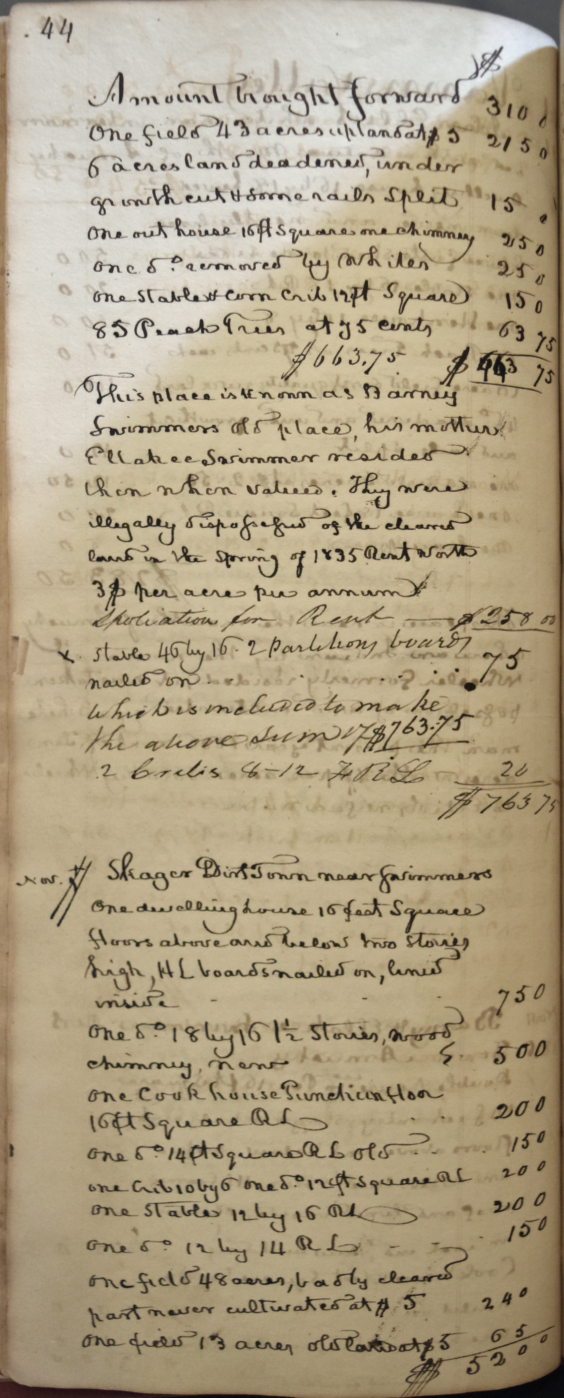 44
$
Amount brought forward 310 0
One field 43 acres upland at $5 215 0
6 acres land deadened, under
growth cut & some rails Split 15
One out house 16 ft Square one chimney 25 0
One do. removed by Whites 25 0
One Stable & Corn Crib 12 ft Square 15 0
85 Peach Trees at 75 cents 63 75
$663.75 $ 663 75
This place is known as Barney
Swimmers old place, his mother
Ellakee Swimmer resided
then when valued. They were
illegally dispossessed of the cleared
land in the Spring of 1835 Rent worth
3$ per acre per annum
Spoliation for Rent $258 00
x Stable 46 by 16. 2 partitions boards
nailed on 75
Which is included to make
the above Sum $763.75
2 Cribs 8-12 R L 20
$763 75
Nov. Skager Dirt Town near Swimmers
One dwelling house 16 feet Square
floors above and below two Stories
high, H L boards nailed on, lined
inside 75 0
One do. 18 by 16 1½ Stories, wood
chimney, new 50 0
One Cook house Puncheon floor
16 ft Square R L 20 0
One do. 14 ft Square R L old 15 0
one Crib 10 by 6 one do. 12 ft Square R L 20 0
One Stable 12 by 16 R L 20 0
One do. 12 by 14 R L 15 0
One field 48 acres, badly cleared
part never cultivated at $5 240
One field 13 acres old at $5 65
$ 520 0